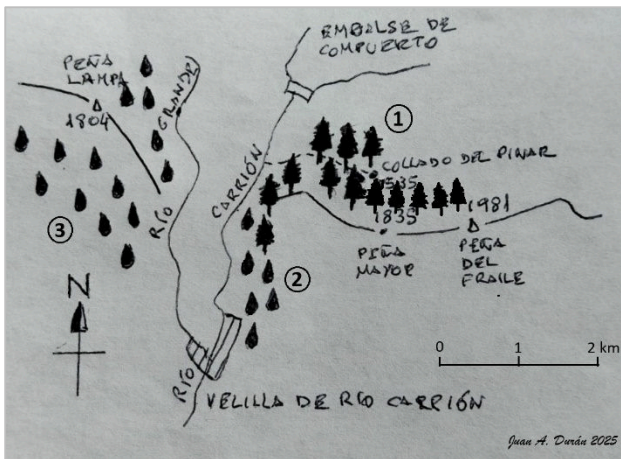 EMBALSE DE
COMPUERTO
PEÑA
LAMPA
1804
GRANDE
RÍO
CARRIÓN
RÍO
1
COLLADO DEL PINAR
1535
1835
1981
PEÑA
MAYOR
PEÑA
DEL
FRAILE
2
3
N
0 1 2 km
VELILLA DE RÍO CARRIÓN
Juan A. Durán 2025